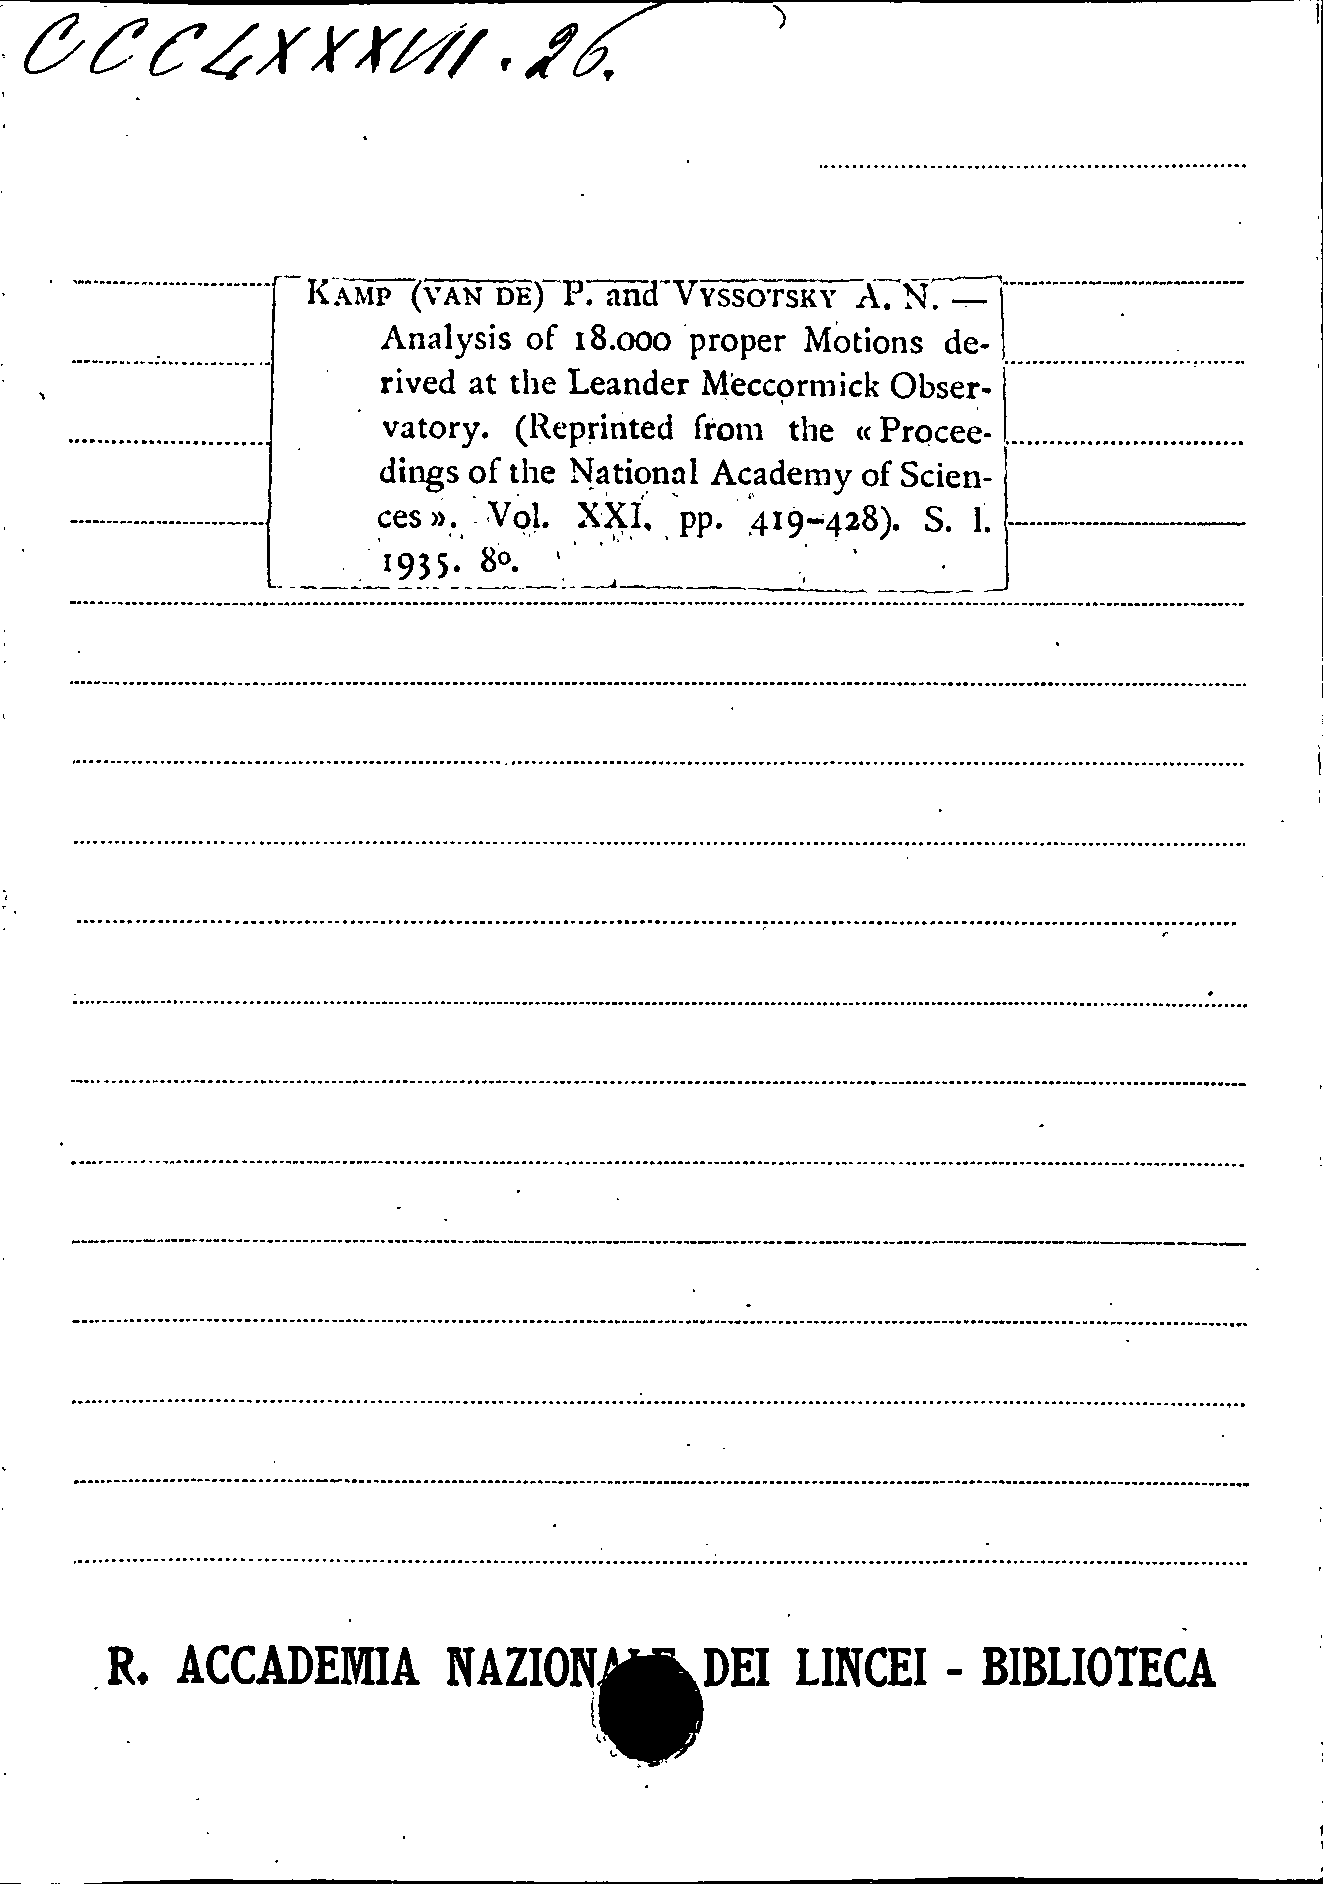 CCCLXXXVII. 26.
KAMP (VAN DE) P. and VYSSOTSKY A. N. —
Analysis of 18.000 proper Motions de-
rived at the Leander Meccormick Obser-
vatory. (Reprinted from the « Procee-
dings of the National Academy of Scien-
ces ». Vol. XXI, pp. 419-428). S. l.
1935. 8º.
R. ACCADEMIA NAZIONALE DEI LINCEI - BIBLIOTECA